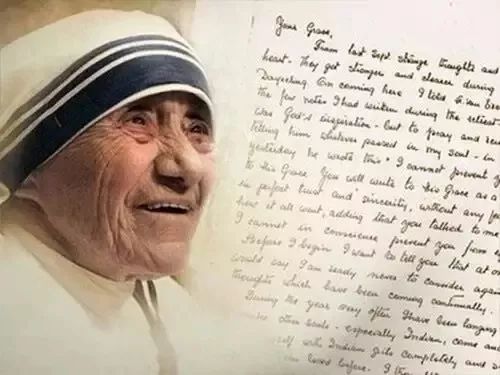 Your Grace,
From last Sept. strange thoughts and
heart. They got stronger and clearer during
Darjeeling. On coming here I told
the few notes I had written during the retreat
was God's inspiration - but to pray and
telling him whatever passed in my soul - in
yesterday he wrote this "I cannot prevent
to His Grace. You will write to His Grace as a
in perfect trust and sincerity, without any
how it all went, adding that you talked to me
I cannot in conscience prevent you from
Before I begin I want to tell you that at
would say I am ready never to consider again
thoughts which have been coming continually.
During the year very often I have been longing
other souls - especially Indian, come and
self with Indian girls completely and
loved before. I